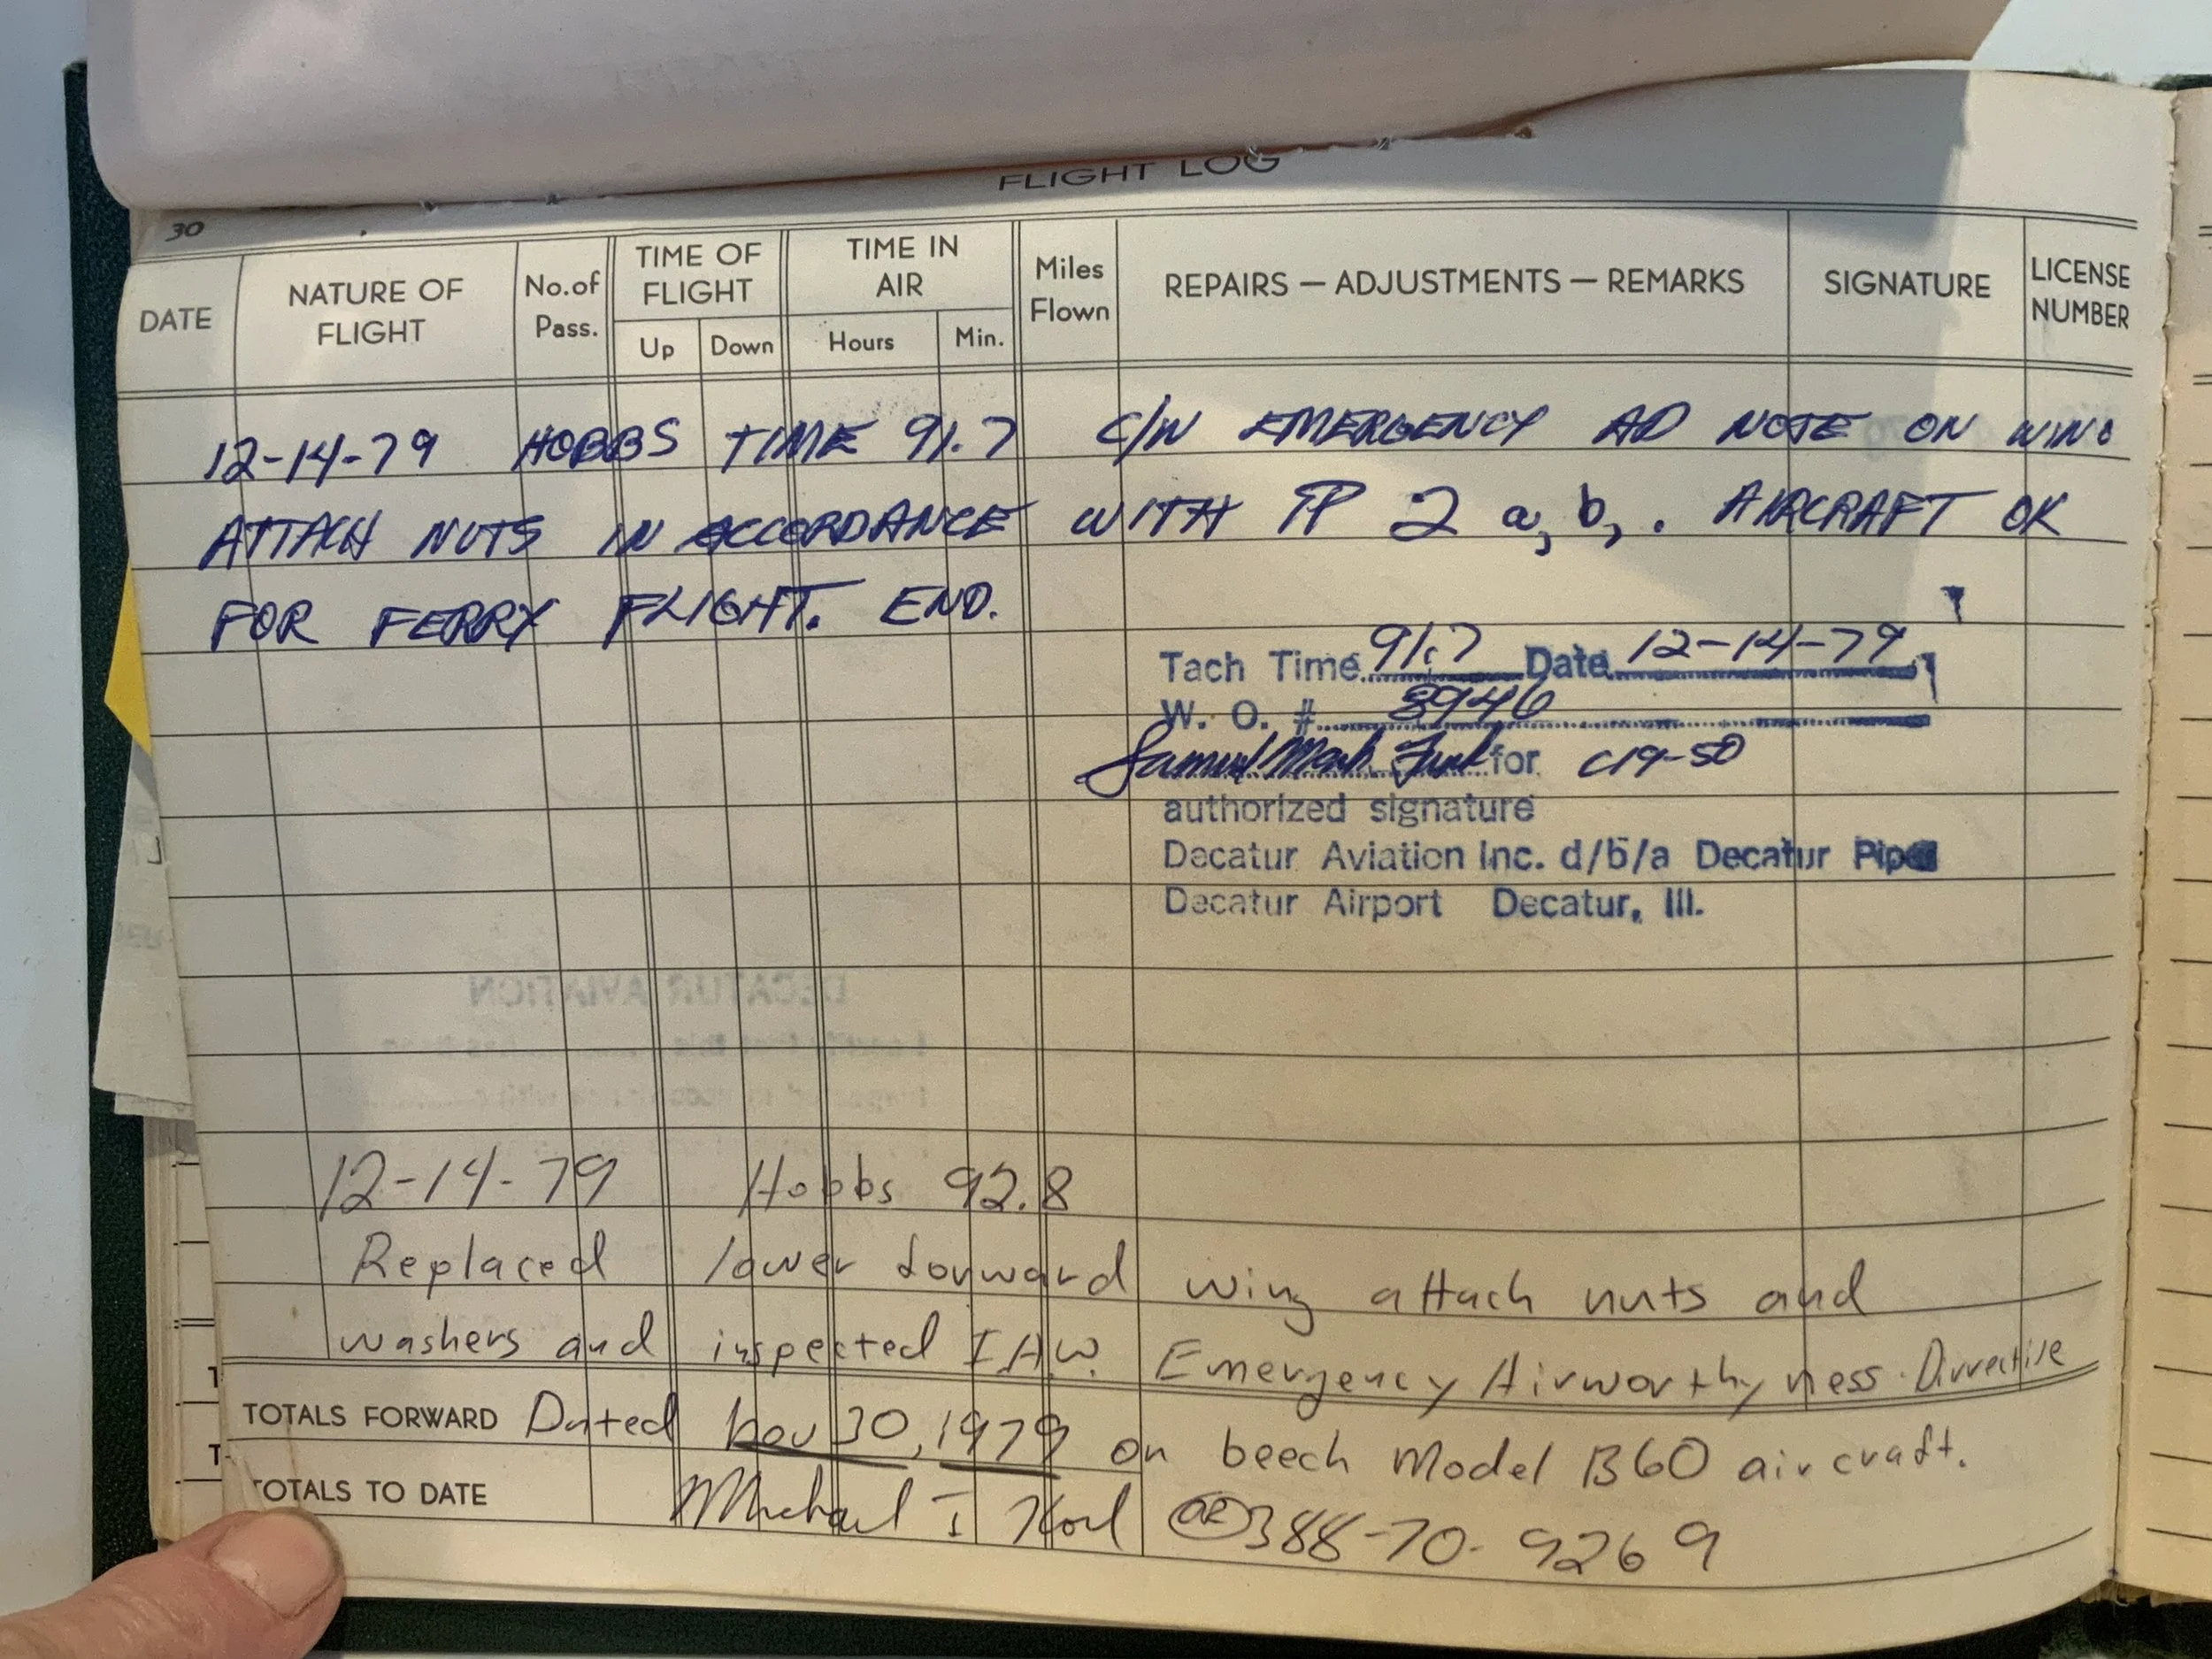 FLIGHT LOG
30
DATE NATURE OF FLIGHT No. of Pass. TIME OF FLIGHT Up Down TIME IN AIR Hours Min. Miles Flown REPAIRS — ADJUSTMENTS — REMARKS SIGNATURE LICENSE NUMBER
12-14-79 HOBBS TIME 91.7 C/W EMERGENCY AD NOTE ON WING
ATTACH NUTS IN ACCORDANCE WITH PP 2 a, b, . AIRCRAFT OK
FOR FERRY FLIGHT. END.
Tach Time 91.7 Date 12-14-79
W. O. # 3946
Samuel Mark for C19-50
authorized signature
Decatur Aviation Inc. d/b/a Decatur Piper
Decatur Airport Decatur, Ill.
DECATUR AVIATION
12-14-79 Hobbs 92.8
Replaced lower forward wing attach nuts and
washers and inspected I.A.W. Emergency Airworthyness Dirrective
TOTALS FORWARD Dated Nov 30, 1979 on beech Model B60 aircraft.
TOTALS TO DATE Michael I 388-70-9269